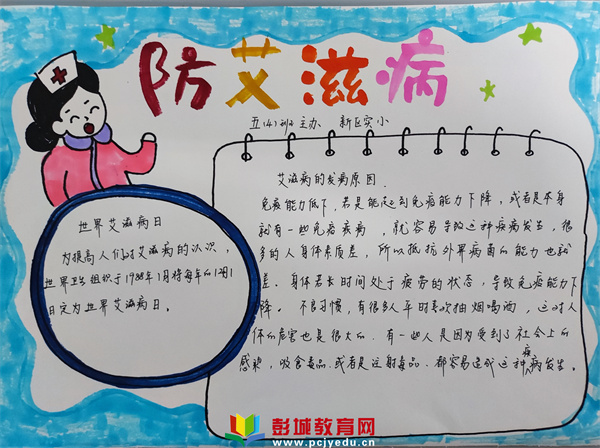 防艾滋病
五(4)班 主办 新区实小
世界艾滋病日
为提高人们对艾滋病的认识，
世界卫生组织于1988年1月将每年的12月1
日定为世界艾滋病日。
艾滋病的发病原因.
免疫能力低下，若是能达到免疫能力下降，或者是本身
就有一些免疫疾病，就容易导致这种疾病发生，很
多的人身体素质差，所以抵抗外界病菌的能力也就
差．身体若长时间处于疲劳的状态，导致免疫能力下
降。不良习惯，有很多人平时喜欢抽烟喝酒，这对人
体的危害也是很大的．有一些人是因为受到了社会上的
感染，吸食毒品．或者是注射毒品．都容易造成这种疾病发生。
彭城教育网
www.pcjyedu.cn